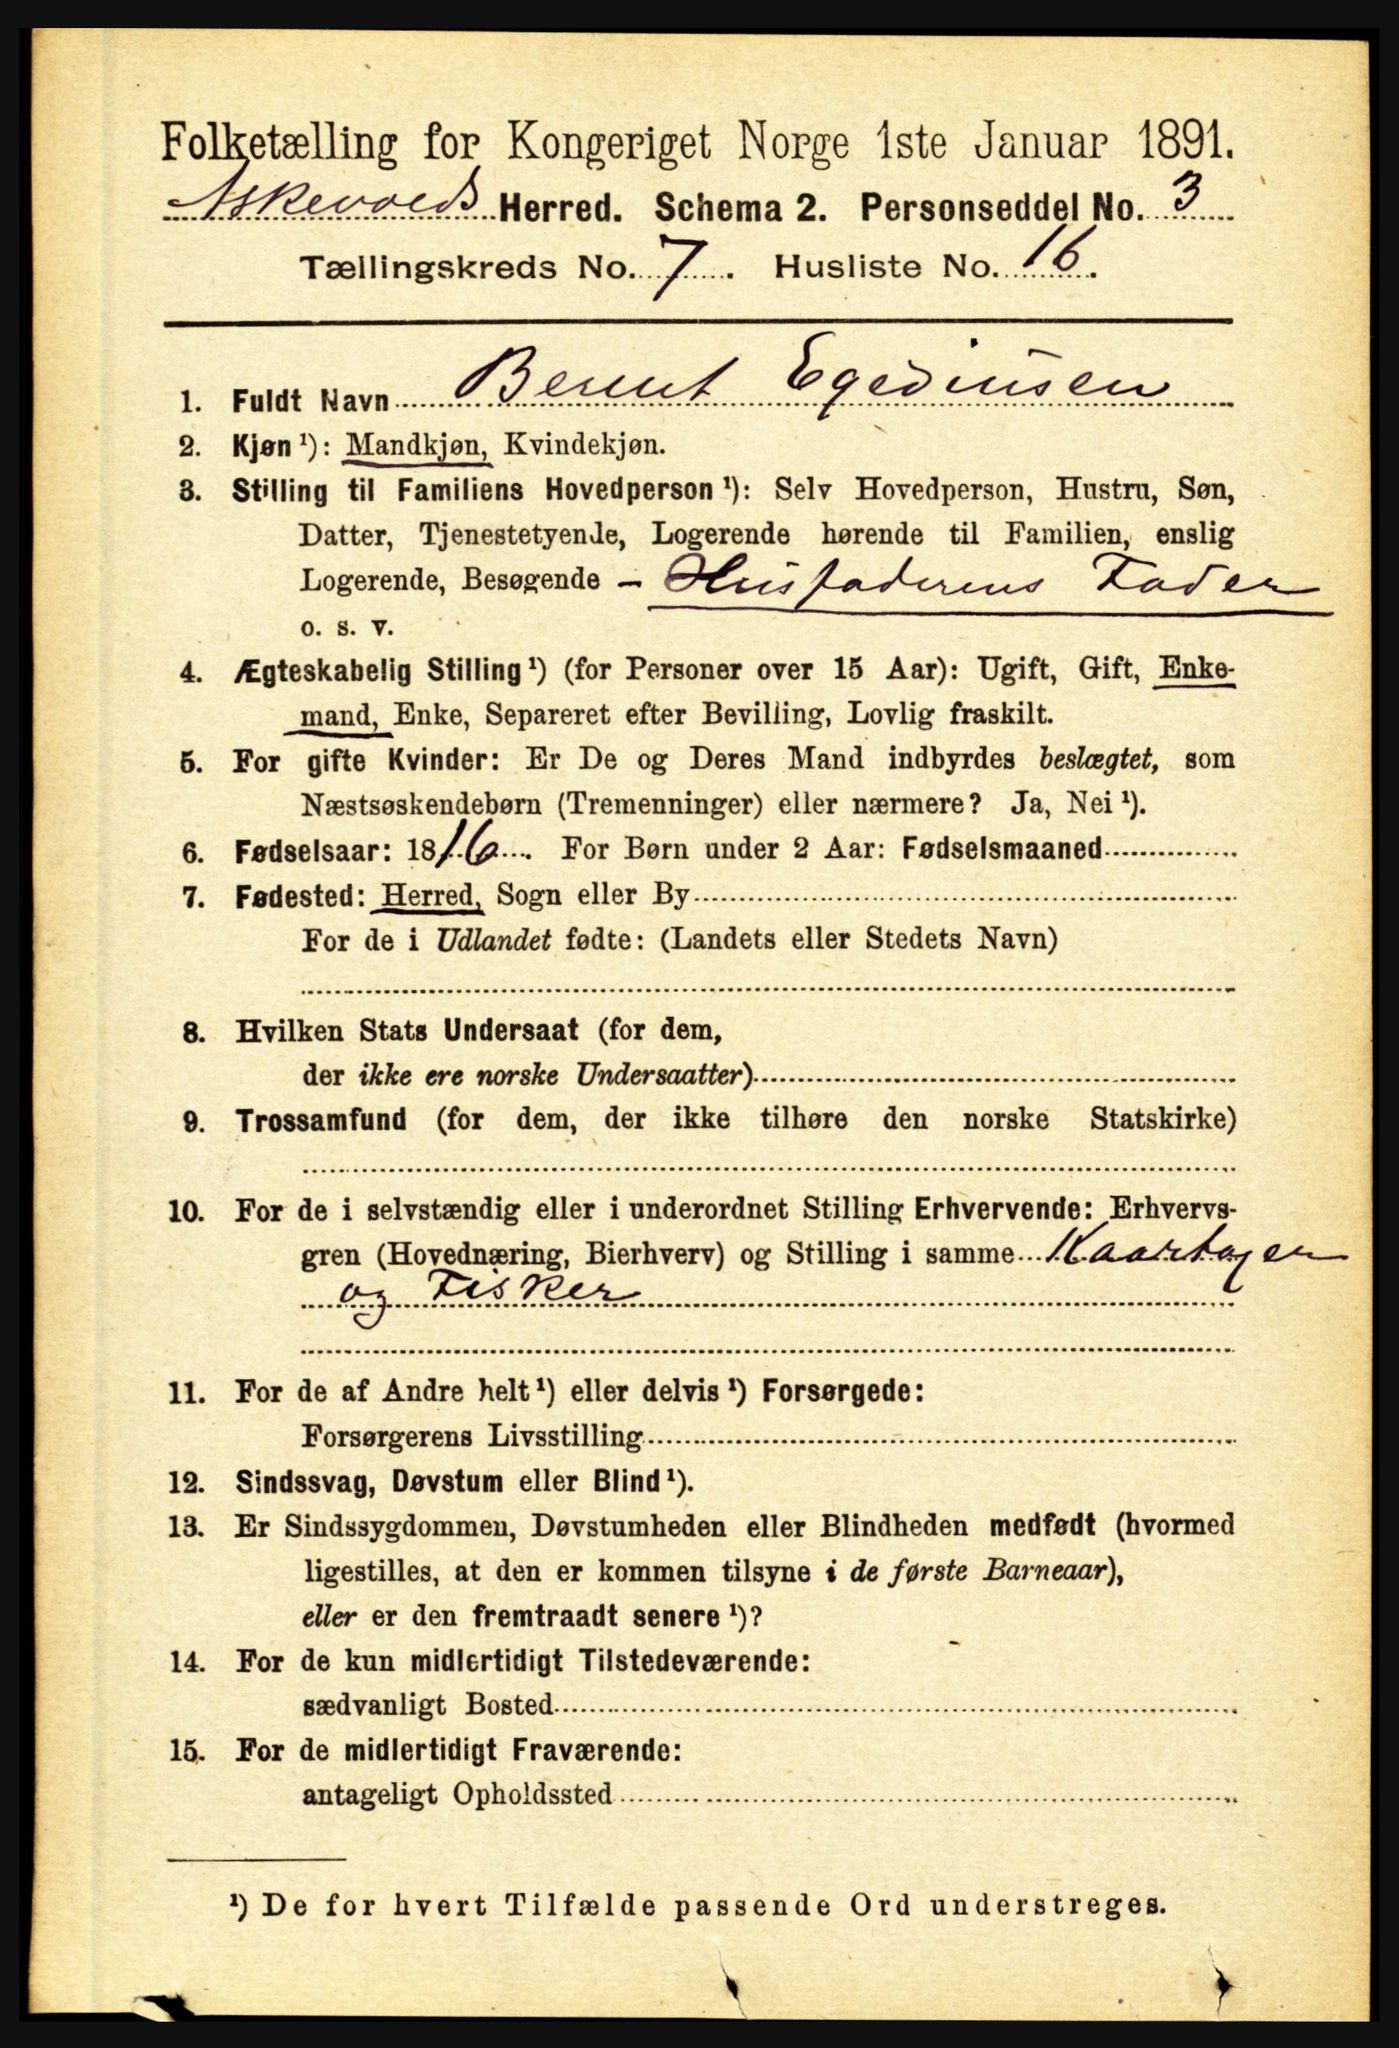 Folketælling for Kongeriget Norge 1ste Januar 1891.
Askevolds Herred. Schema 2. Personseddel No. 3
Tællingskreds No. 7. Husliste No. 16.
1. Fuldt Navn Berent Egediusen
2. Kjøn ¹): Mandkjøn, Kvindekjøn.
3. Stilling til Familiens Hovedperson ¹): Selv Hovedperson, Hustru, Søn,
Datter, Tjenestetyende, Logerende hørende til Familien, enslig
Logerende, Besøgende – Husfaderens Fader
o. s. v.
4. Ægteskabelig Stilling ¹) (for Personer over 15 Aar): Ugift, Gift, Enke-
mand, Enke, Separeret efter Bevilling, Lovlig fraskilt.
5. For gifte Kvinder: Er De og Deres Mand indbyrdes beslægtet, som
Næstsøskendebørn (Tremenninger) eller nærmere? Ja, Nei ¹).
6. Fødselsaar: 1816. For Børn under 2 Aar: Fødselsmaaned
7. Fødested: Herred, Sogn eller By
For de i Udlandet fødte: (Landets eller Stedets Navn)
8. Hvilken Stats Undersaat (for dem,
der ikke ere norske Undersaatter)
9. Trossamfund (for dem, der ikke tilhøre den norske Statskirke)
10. For de i selvstændig eller i underordnet Stilling Erhvervende: Erhvervs-
gren (Hovednæring, Bierhverv) og Stilling i samme Kaartager
og Fisker
11. For de af Andre helt ¹) eller delvis ¹) Forsørgede:
Forsørgerens Livsstilling
12. Sindssvag, Døvstum eller Blind ¹).
13. Er Sindssygdommen, Døvstumheden eller Blindheden medfødt (hvormed
ligestilles, at den er kommen tilsyne i de første Barneaar),
eller er den fremtraadt senere ¹)?
14. For de kun midlertidigt Tilstedeværende:
sædvanligt Bosted
15. For de midlertidigt Fraværende:
antageligt Opholdssted
¹) De for hvert Tilfælde passende Ord understreges.